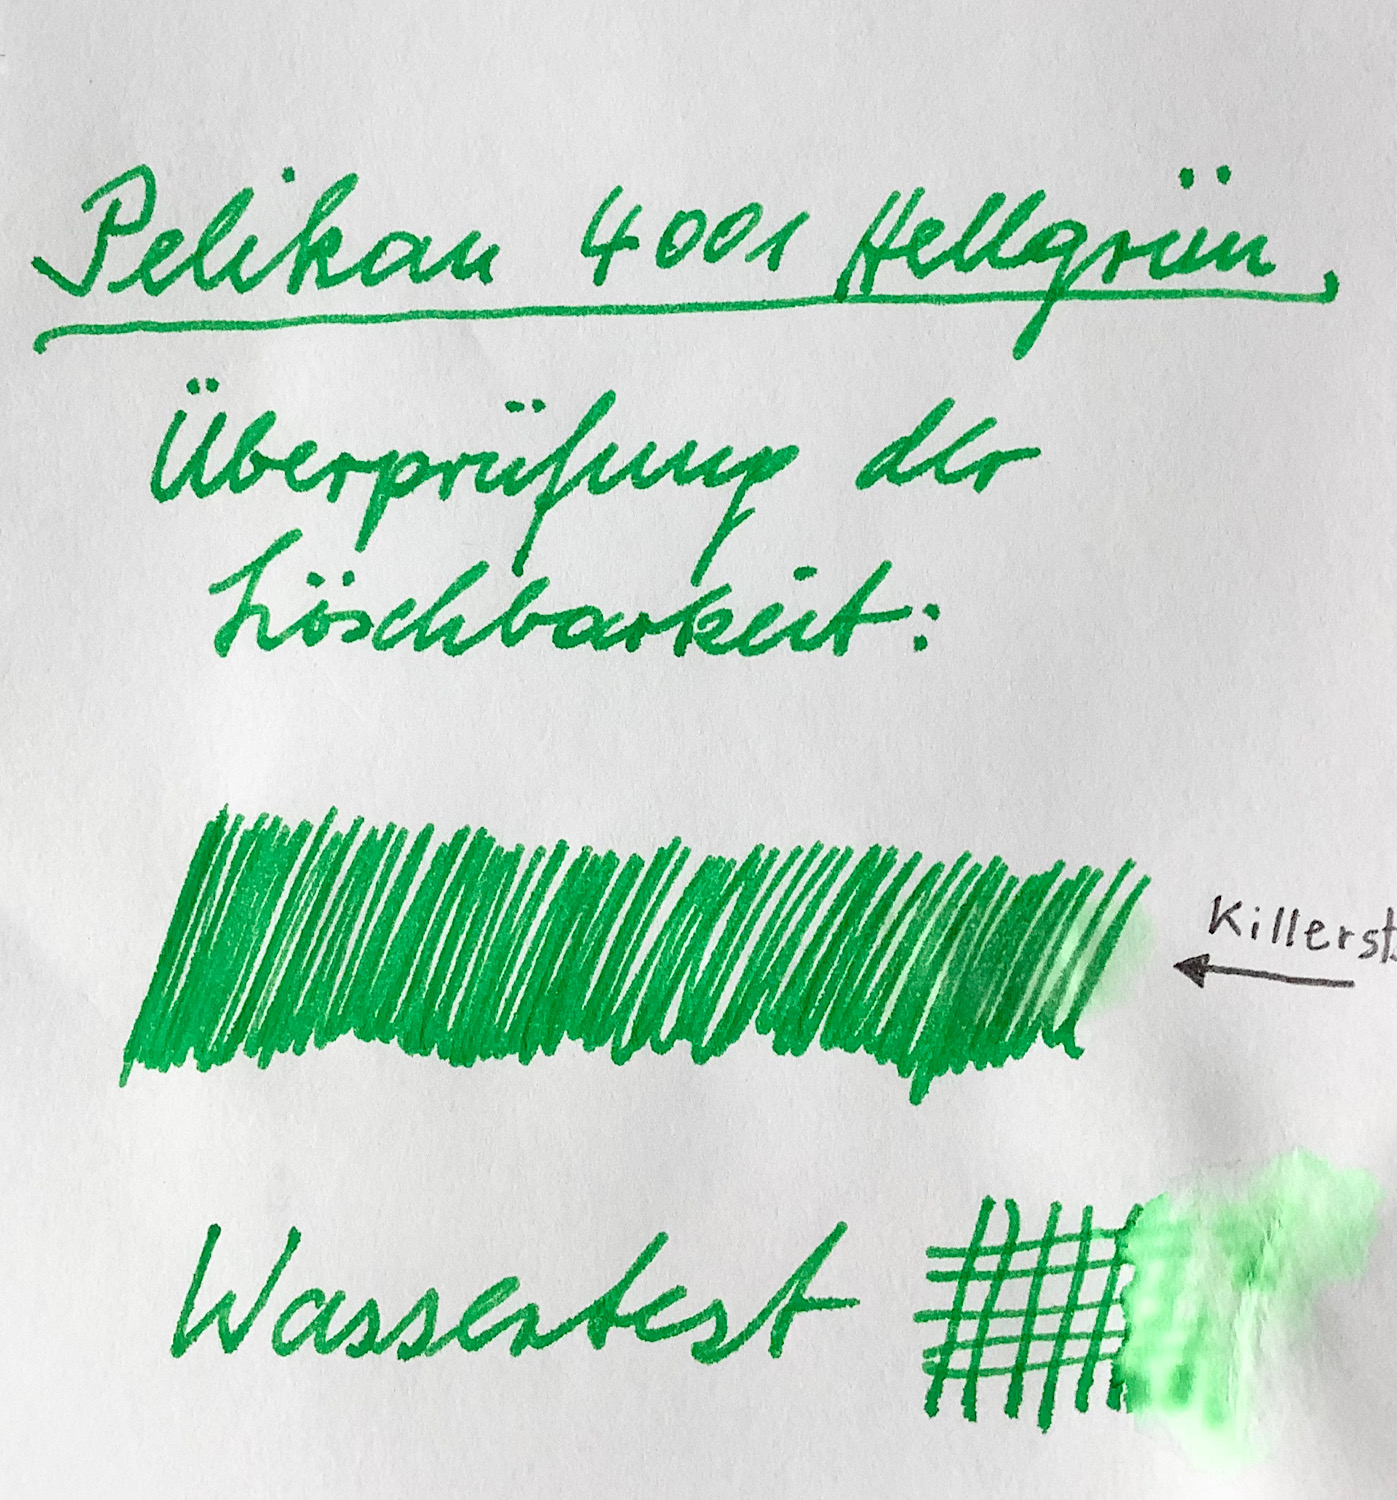 Pelikan 4001 Hellgrün.
Überprüfung der
Löschbarkeit:
Killerst.
Wassertest